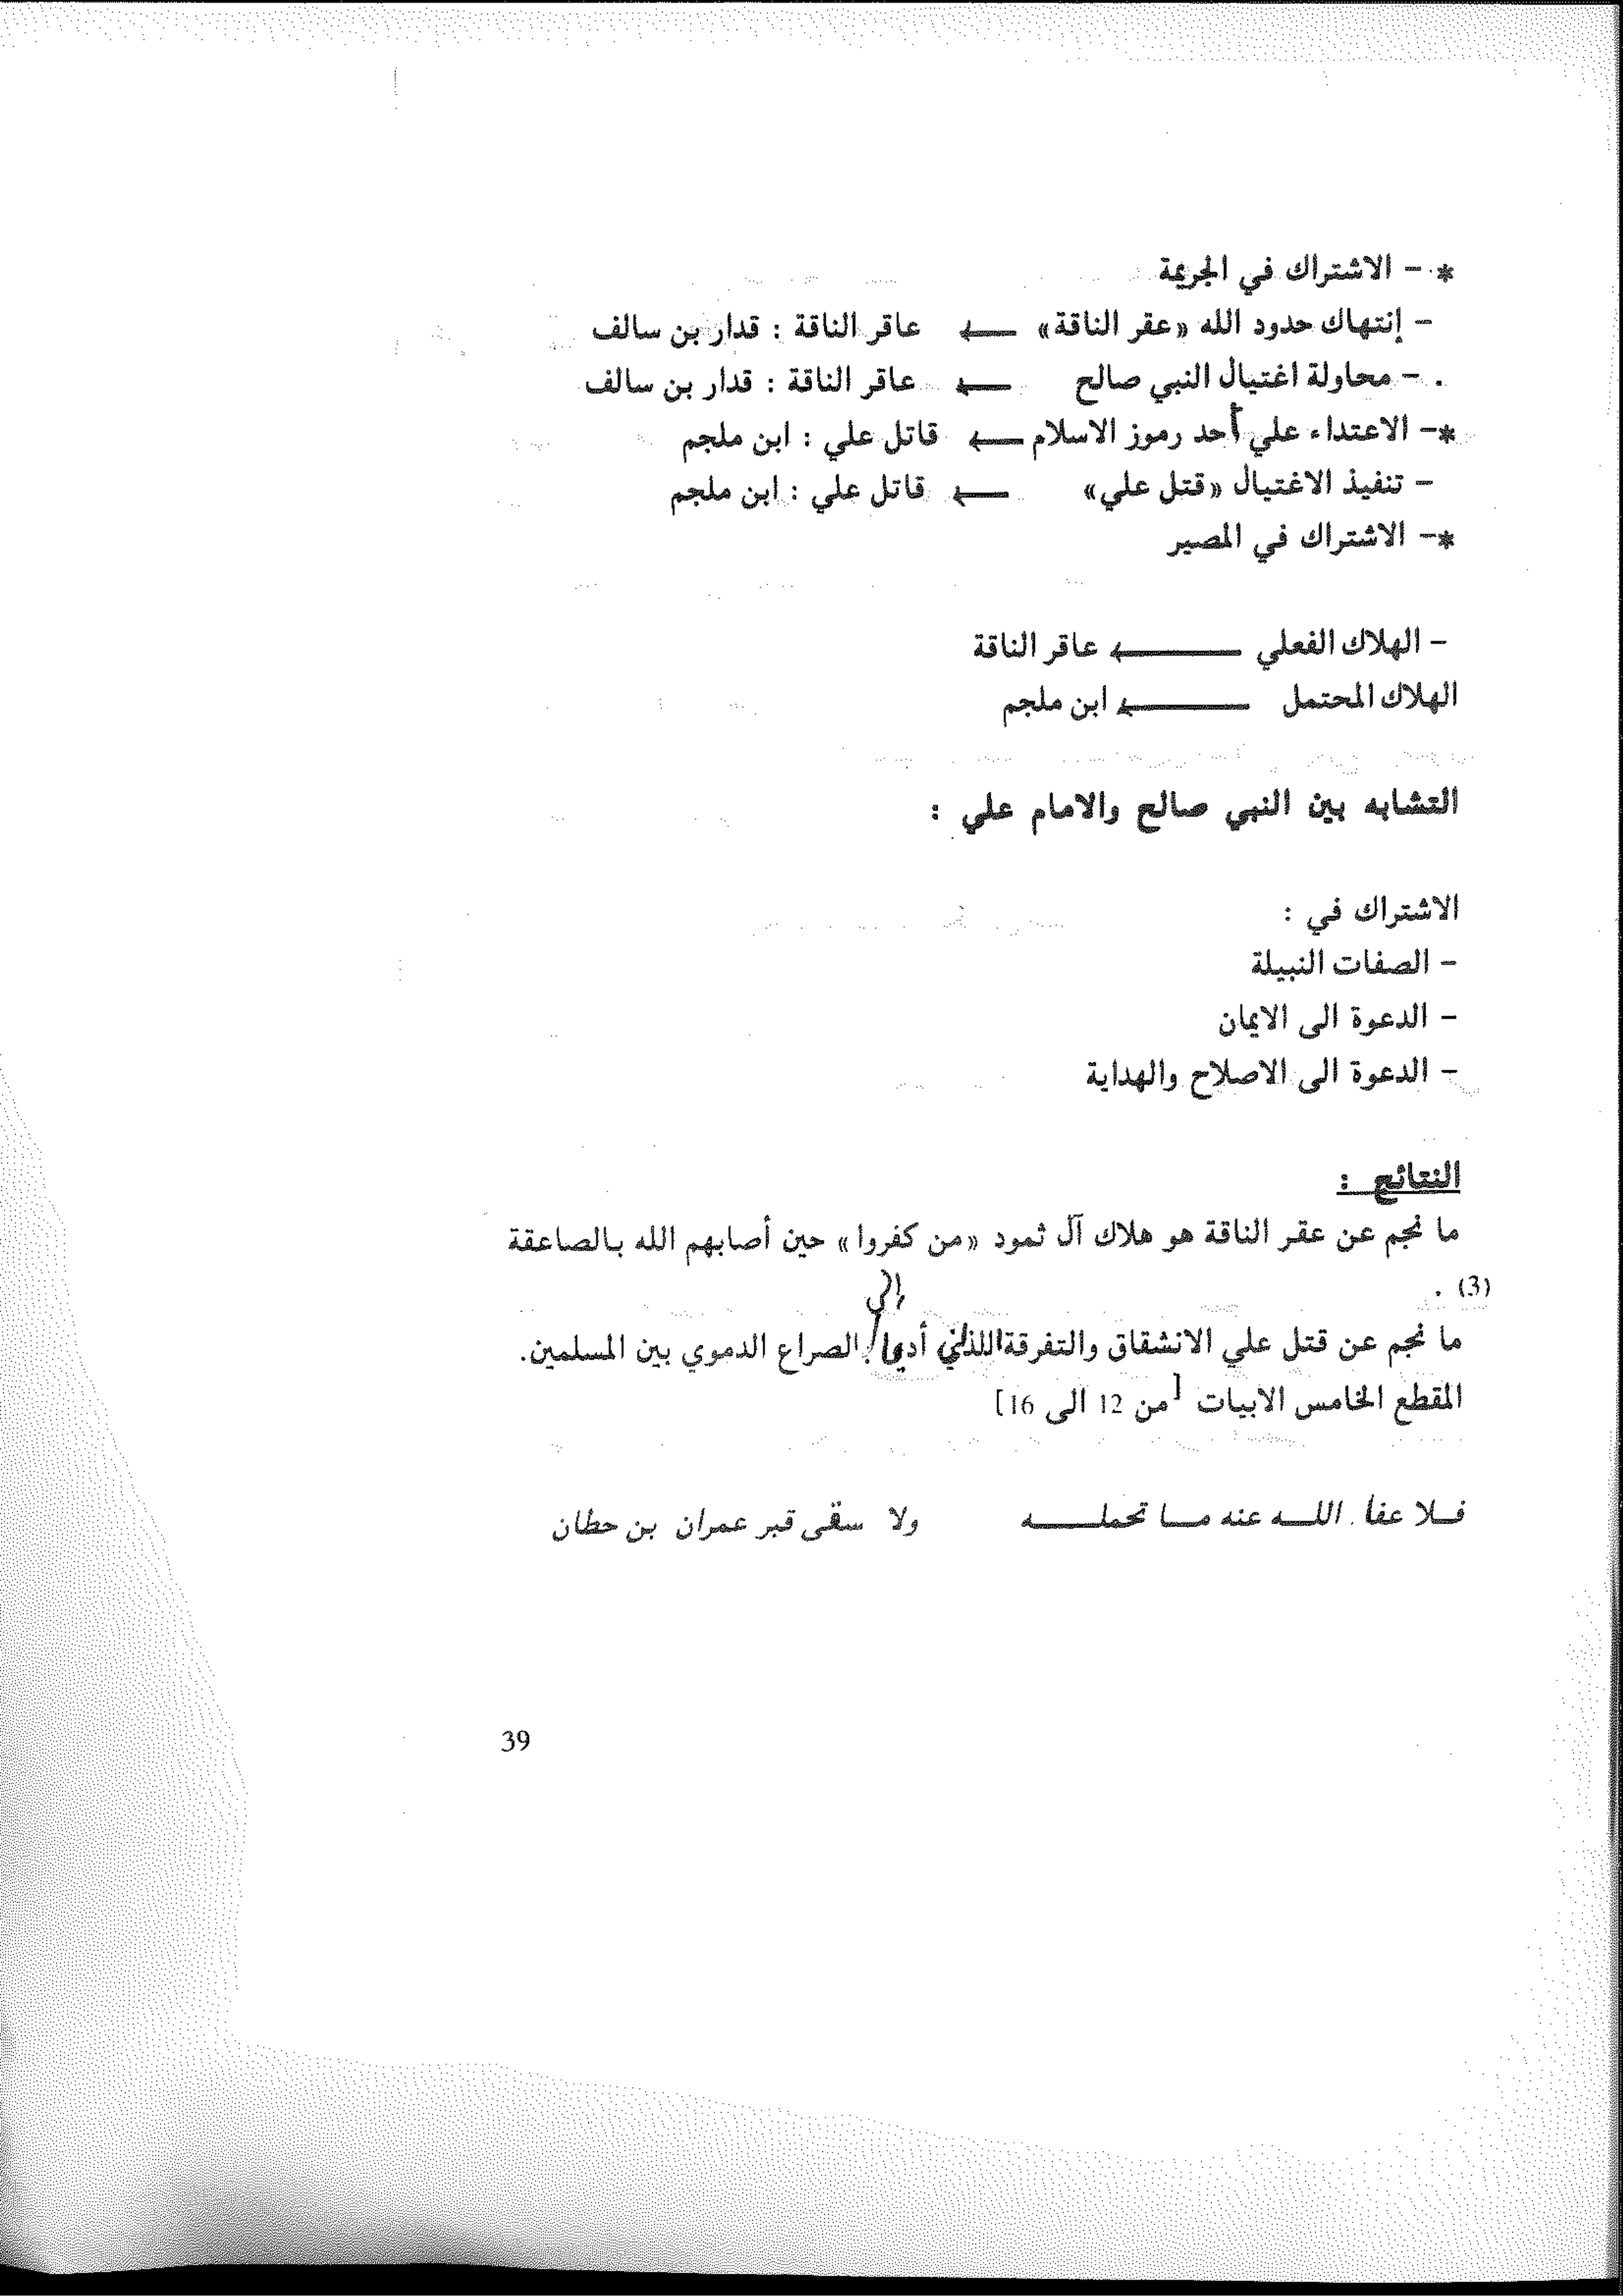 *- الاشتراك في الجريمة
- إنتهاك حدود الله «عقر الناقة» ← عاقر الناقة : قدار بن سالف
- محاولة اغتيال النبي صالح ← عاقر الناقة : قدار بن سالف
*- الاعتداء علي أحد رموز الاسلام ← قاتل علي : ابن ملجم
- تنفيذ الاغتيال «قتل علي» ← قاتل علي : ابن ملجم
*- الاشتراك في المصير
- الهلاك الفعلي ← عاقر الناقة
الهلاك المحتمل ← ابن ملجم
التشابه بين النبي صالح والامام علي :
الاشتراك في :
- الصفات النبيلة
- الدعوة الى الايمان
- الدعوة الى الاصلاح والهداية
النتائج :
ما نجم عن عقر الناقة هو هلاك آل ثمود «من كفروا» حين أصابهم الله بالصاعقة
(3) .
إلى
ما نجم عن قتل علي الانشقاق والتفرقة اللذان أديا الصراع الدموي بين المسلمين.
المقطع الخامس الابيات [من 12 الى 16]
فلا عفا الله عنه ما تحمله ولا سقى قبر عمران بن حطان
39